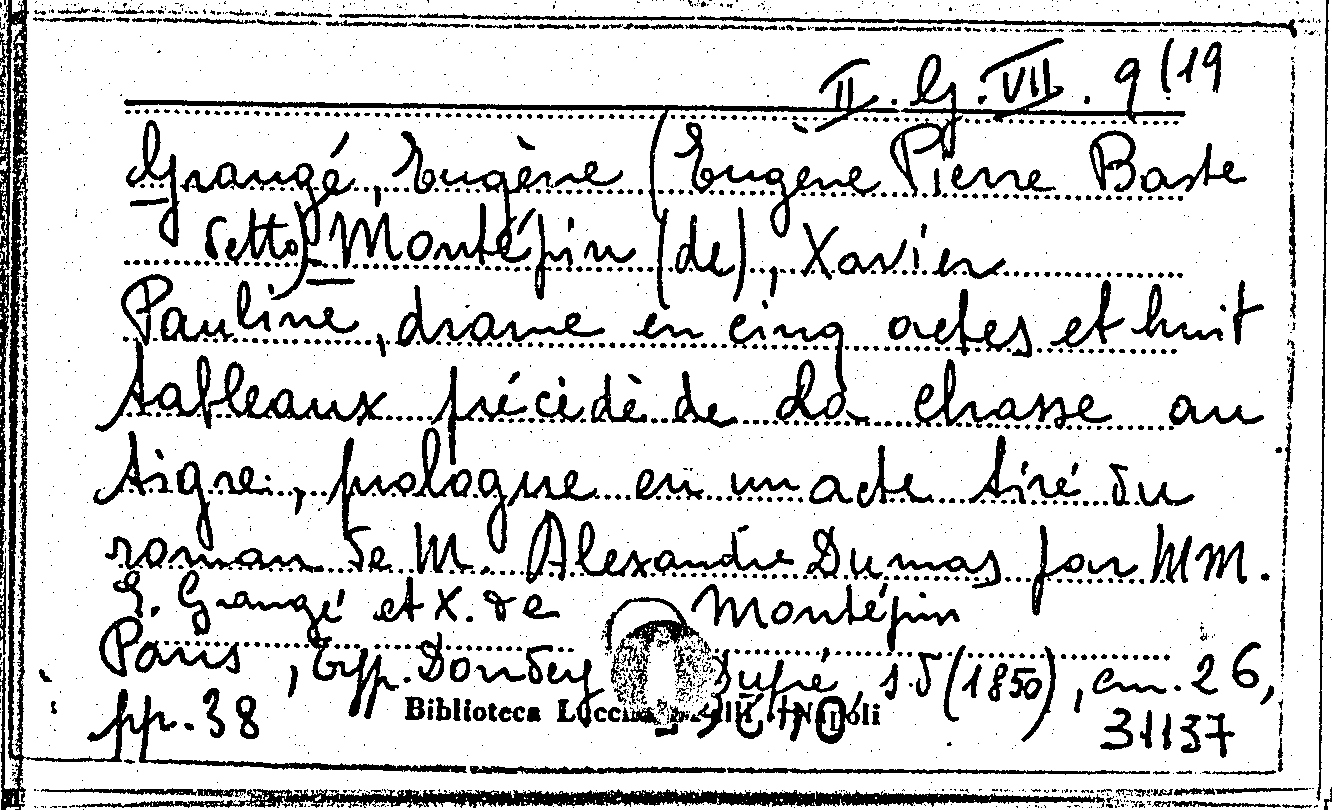 II. G. VII. 9(19
Grangé, Eugène (Eugène Pierre Baste
detto) - Montépin (de), Xavier
Pauline, drame en cinq actes et huit
tableaux précédé de La chasse au
tigre, prologue en un acte tiré du
roman de M. Alexandre Dumas par MM.
E. Grangé et X. de Montépin
Paris, Typ. Dondey Dupré, s.d (1850), cm. 26,
pp. 38
Biblioteca Lucchesi Palli - Napoli
31137